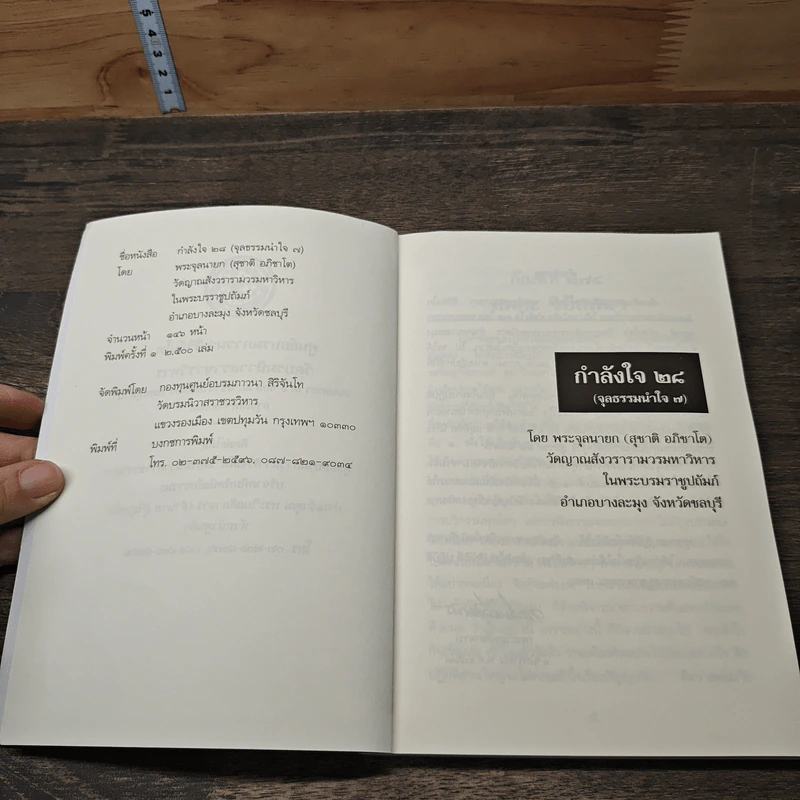 5
4
3
2
1
ชื่อหนังสือ กำลังใจ ๒๘ (จุลธรรมนำใจ ๗)
โดย พระจุลนายก (สุชาติ อภิชาโต)
วัดญาณสังวรารามวรมหาวิหาร
ในพระบรมราชูปถัมภ์
อำเภอบางละมุง จังหวัดชลบุรี
จำนวนหน้า ๑๔๖ หน้า
พิมพ์ครั้งที่ ๑ ๒,๕๐๐ เล่ม
จัดพิมพ์โดย กองทุนศูนย์อบรมภาวนา สิริจันโท
วัดบรมนิวาสราชวรวิหาร
แขวงรองเมือง เขตปทุมวัน กรุงเทพฯ ๑๐๓๓๐
พิมพ์ที่ บงกชการพิมพ์
โทร. ๐๒-๓๗๕-๒๕๙๖, ๐๘๗-๘๒๑-๙๐๓๔
กำลังใจ ๒๘
(จุลธรรมนำใจ ๗)
โดย พระจุลนายก (สุชาติ อภิชาโต)
วัดญาณสังวรารามวรมหาวิหาร
ในพระบรมราชูปถัมภ์
อำเภอบางละมุง จังหวัดชลบุรี